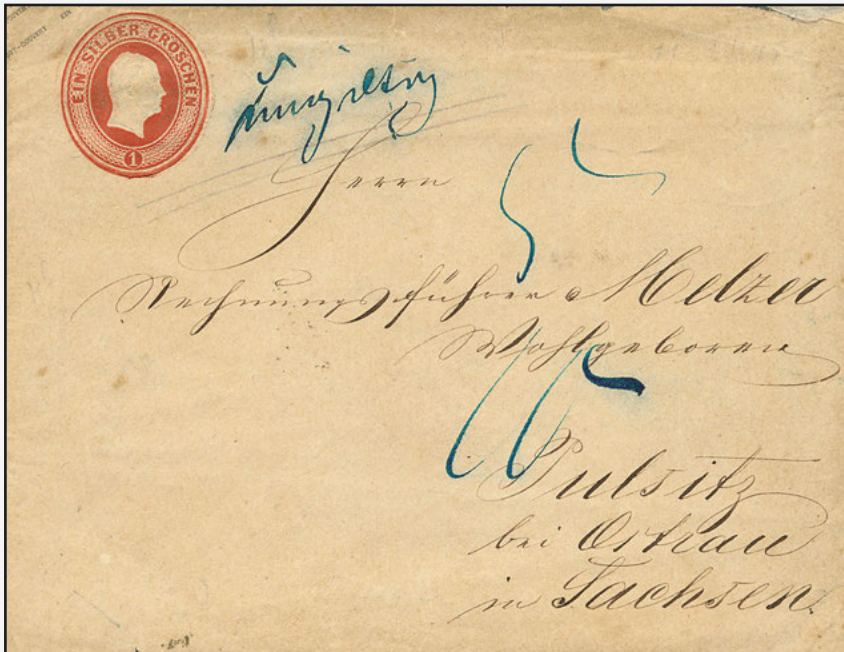 EIN SILBER GROSCHEN
1
ungiltig
Herrn
Rechnungsführer Melzer
Wohlgeboren
Pulsitz
bei Ostrau
in Sachsen.